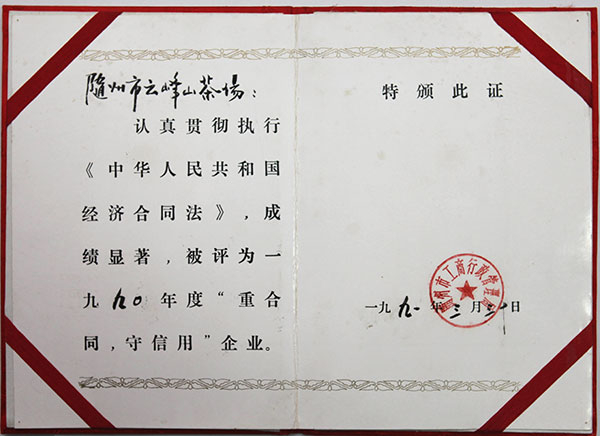 随州市云峰山茶场：
认真贯彻执行
《中华人民共和国
经济合同法》，成
绩显著，被评为一
九九0年度“重合
同，守信用”企业。
特颁此证
随州市工商行政管理局
一九九一年三月 日